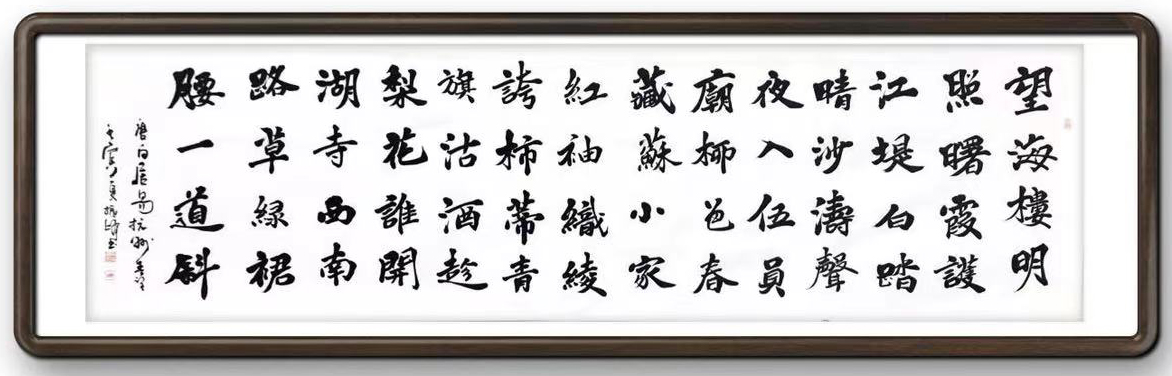 望海樓明
照曙霞護
江堤白踏
晴沙濤聲
夜入伍員
廟柳色春
藏蘇小家
紅袖織綾
誇柿蒂青
旗沽酒趁
梨花誰開
湖寺西南
路草綠裙
腰一道斜
唐白居易杭州春望